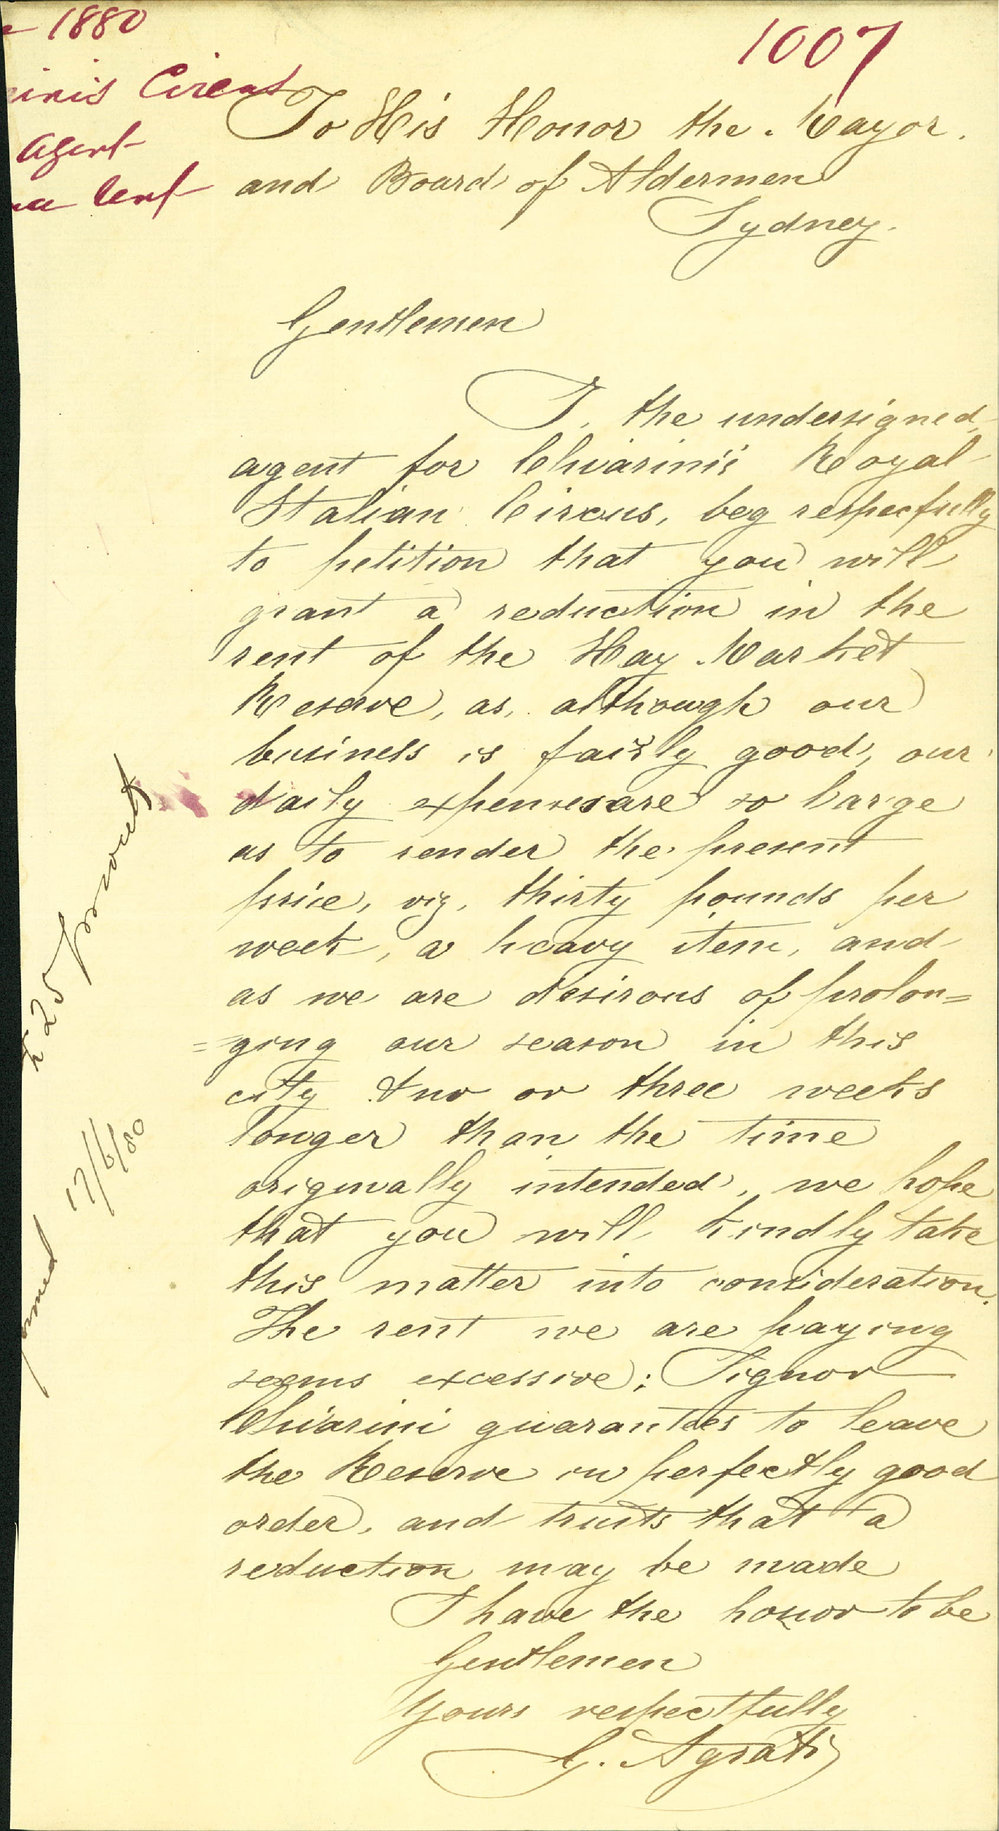 1880
1007
inis Circus
Agent
Rent
To His Honor the Mayor.
and Board of Aldermen
Sydney.
Gentlemen
I, the undersigned,
agent for Chiarini's Royal
Italian Circus, beg respecfully
to petition that you will
grant a reduction in the
rent of the Hay Market
Reserve, as, although our
business is fairly good, our
daily expenses are so large
as to render the present
price, viz, thirty pounds per
week, a heavy item, and
as we are desirous of prolon=
=ging our season in this
city two or three weeks
longer than the time
originally intended, we hope
that you will kindly take
this matter into consideration.
The rent we are paying
seems excessive; Signor
Chiarini guarantees to leave
the Reserve in perfectly good
order, and trusts that a
reduction may be made
I have the honor to be
Gentlemen
Yours respectfully
G. Agrati
£25 per week
17/6/80